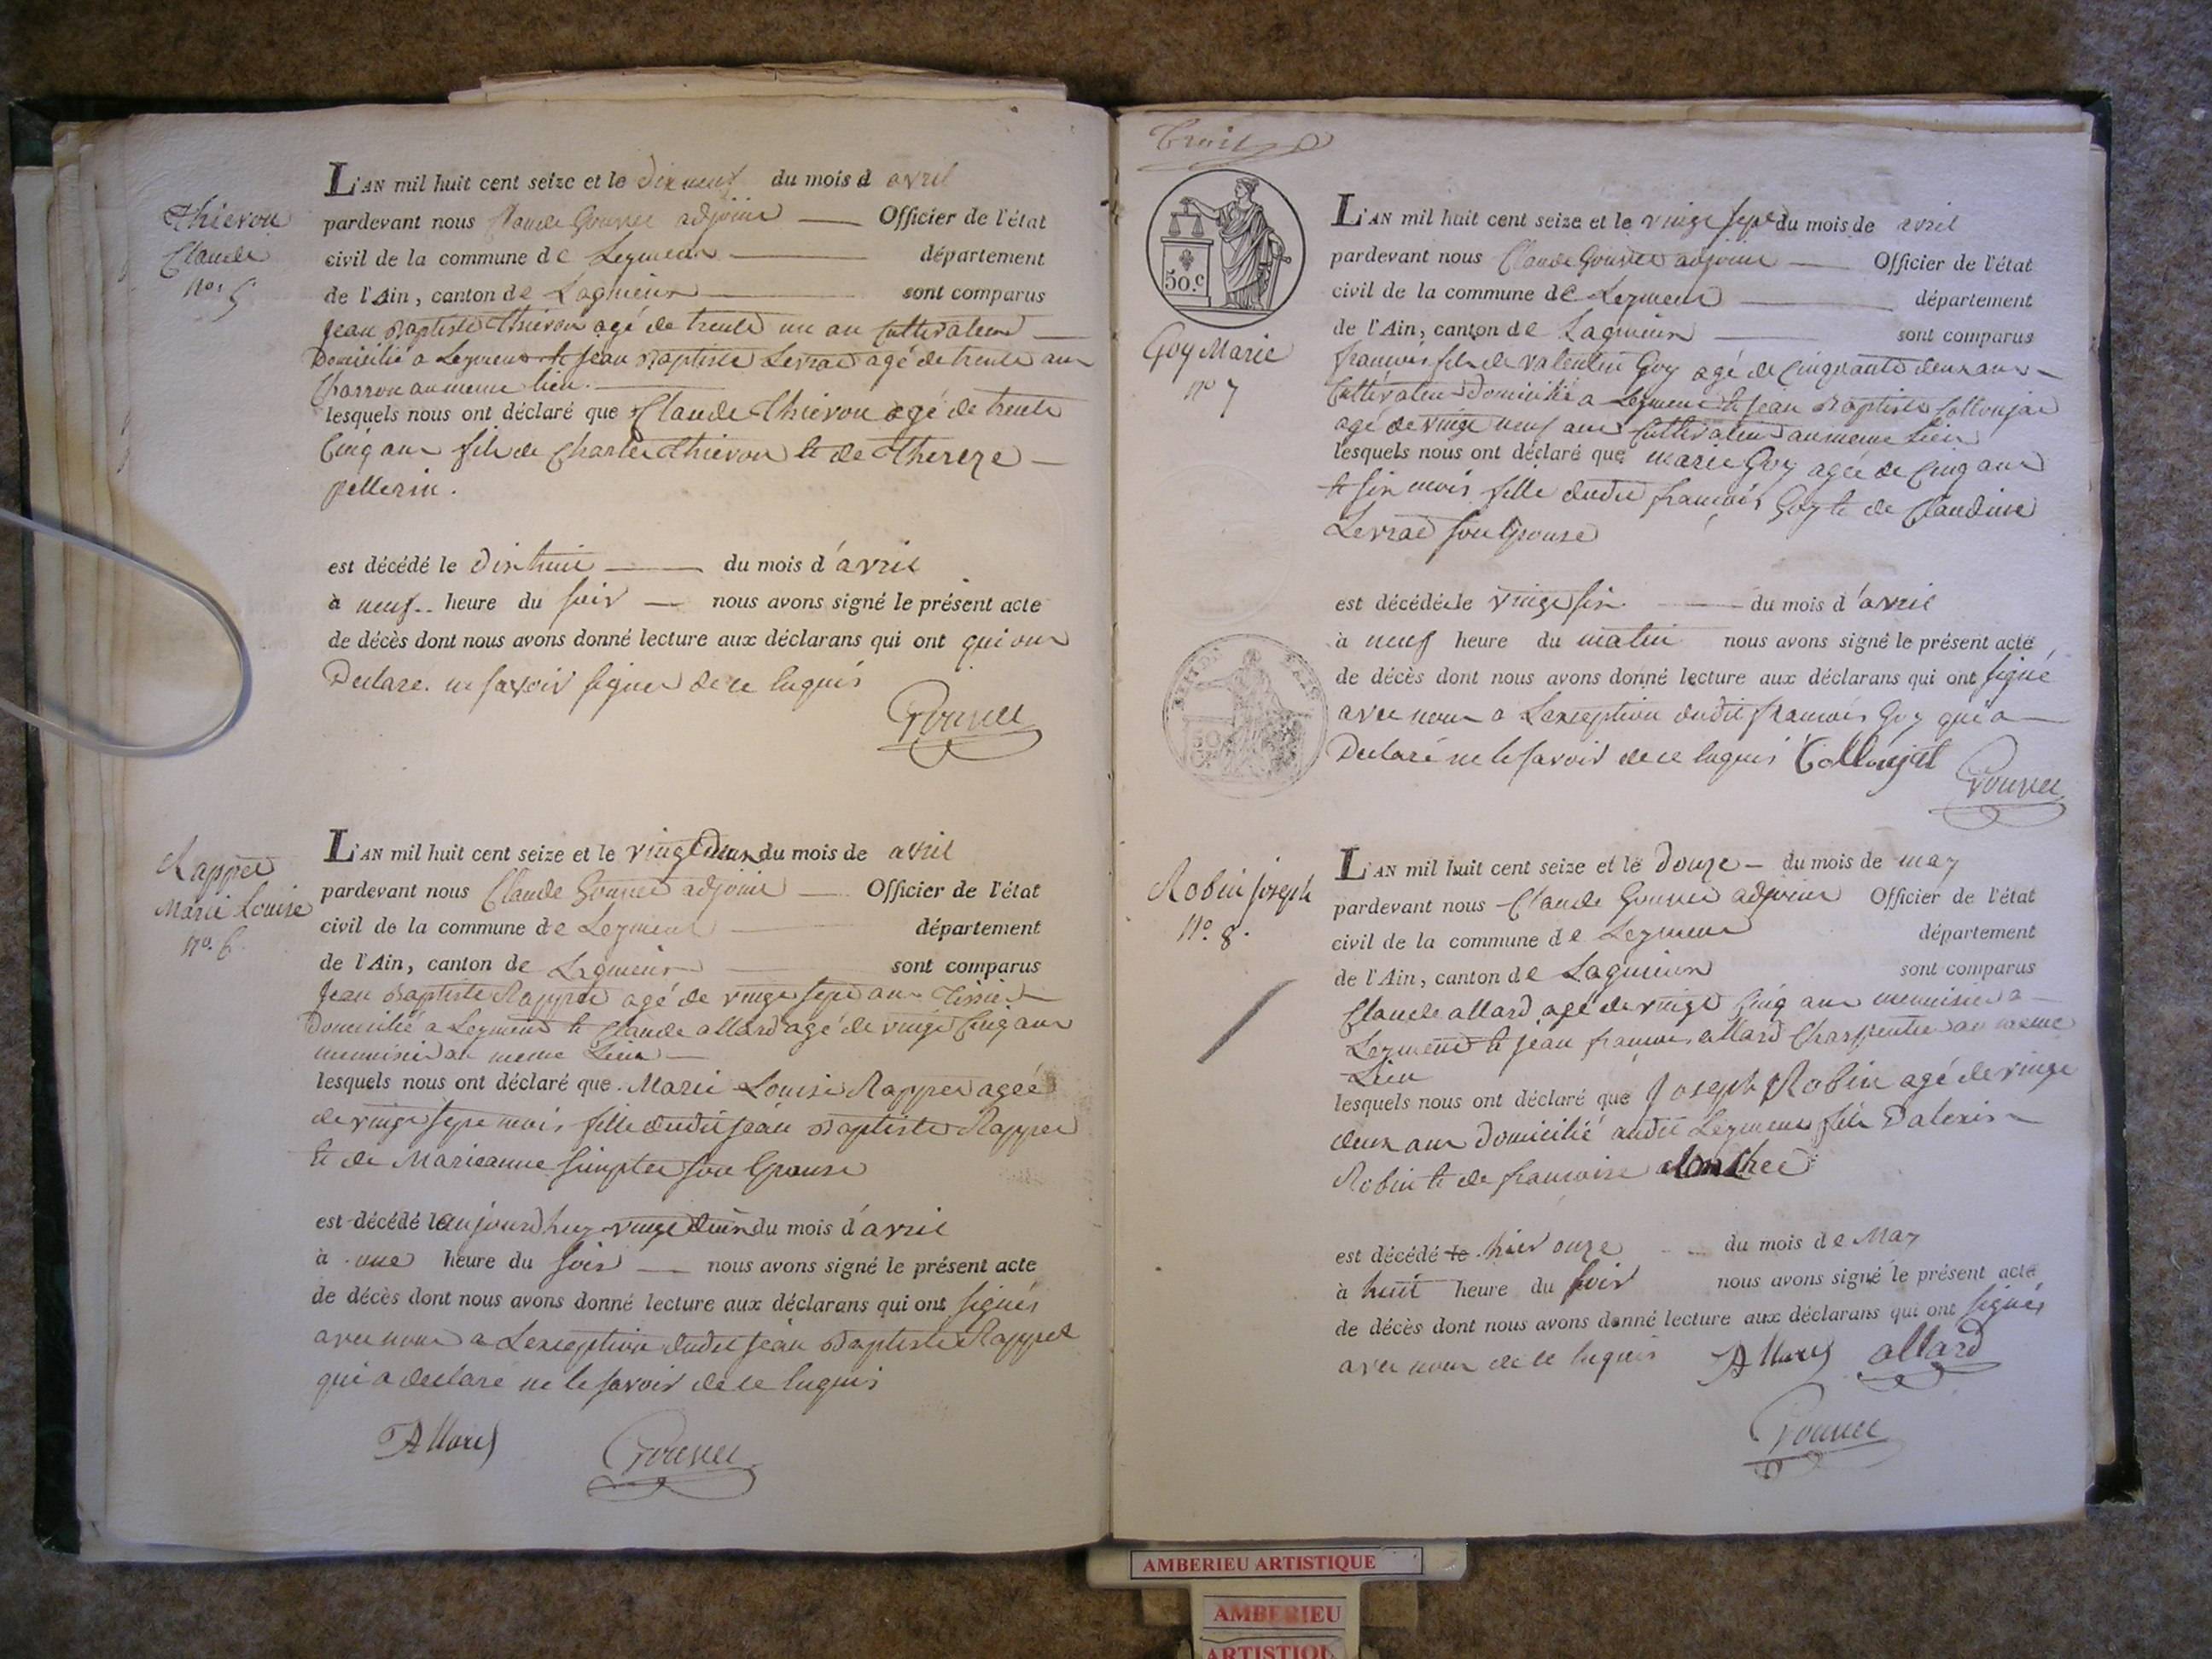 Thievon
Claude
n.° 5
L'AN mil huit cent seize et le dix neuf du mois d avril
pardevant nous Claude Gouvet adjoint Officier de l'état
civil de la commune de Leyment département
de l'Ain, canton de Lagnieux sont comparus
Jean Baptiste Thievon agé de trente un an Cultivateur
Domicilié a Leyment et Jean Baptiste Levrat agé de trente ans
Charron au meme lieu.
lesquels nous ont déclaré que Claude Thievon agé de trente
Cinq ans fils de Charles Thievon et de Thereze
pellerin.
est décédé le Dix huit du mois d'avril
à neuf heure du soir nous avons signé le présent acte
de décès dont nous avons donné lecture aux déclarans qui ont qui ont
Declare ne savoir signer de ce Enquis
Gouvet
Rappet
Marie Louise
n.° 6
L'AN mil huit cent seize et le vingt deux du mois de avril
pardevant nous Claude Gouvet adjoint Officier de l'état
civil de la commune de Leyment département
de l'Ain, canton de Lagnieux sont comparus
Jean Baptiste Rappet agé de vingt sept ans Tissier
Domicilié a Leyment et Claude allard agé de vingt Cinq ans
menuisier au meme Lieu
lesquels nous ont déclaré que Marie Louise Rappet ageé
de vingt sept mois fille dudit Jean Baptiste Rappet
et de Marieanne son Epouse
est décédé le aujourdhuy vingt deux du mois d'avril
à une heure du soir nous avons signé le présent acte
de décès dont nous avons donné lecture aux déclarans qui ont signés
avec nous a Lexception dudit Jean Baptiste Rappet
qui a declare ne le savoir de ce Enquis
Allard Gouvet
Trois
50.c
Goy Marie
n° 7
L'AN mil huit cent seize et le vingt sept du mois de avril
pardevant nous Claude Gouvet adjoint Officier de l'état
civil de la commune de Leyment département
de l'Ain, canton de Lagnieux sont comparus
francois fils de valentin Goy agé de Cinquante deux ans
Cultivateur Domicilié a Leyment et Jean Baptiste Collonjat
agé de vingt neuf ans Cultivateur au meme Lieu
lesquels nous ont déclaré que marie Goy agée de Cinq ans
et six mois fille dudit francois Goy et de Claudine
Levrat son Epouse
est décédée le vingt six du mois d'avril
à neuf heure du matin nous avons signé le présent acte
de décès dont nous avons donné lecture aux déclarans qui ont signé
avec nous a Lexception dudit francois Goy qui a
Declaré ne le savoir de ce Enquis Collonjat
Gouvet
Robin Joseph
N.° 8.
L'AN mil huit cent seize et le Douze du mois de may
pardevant nous Claude Gouvet adjoint Officier de l'état
civil de la commune de Leyment département
de l'Ain, canton de Lagnieux sont comparus
Claude allard agé de vingt Cinq ans menuisier a
Leyment et Jean francois allard Charpentier au meme
Lieu
lesquels nous ont déclaré que Joseph Robin agé de vingt
deux ans Domicilié audit Leyment fils Dalexis
Robin et de francoise
est décédé le hier onze du mois de May
à huit heure du soir nous avons signé le présent acte
de décès dont nous avons donné lecture aux déclarans qui ont signés
avec nous de ce Enquis Allard allard
Gouvet
AMBERIEU ARTISTIQUE
AMBERIEU